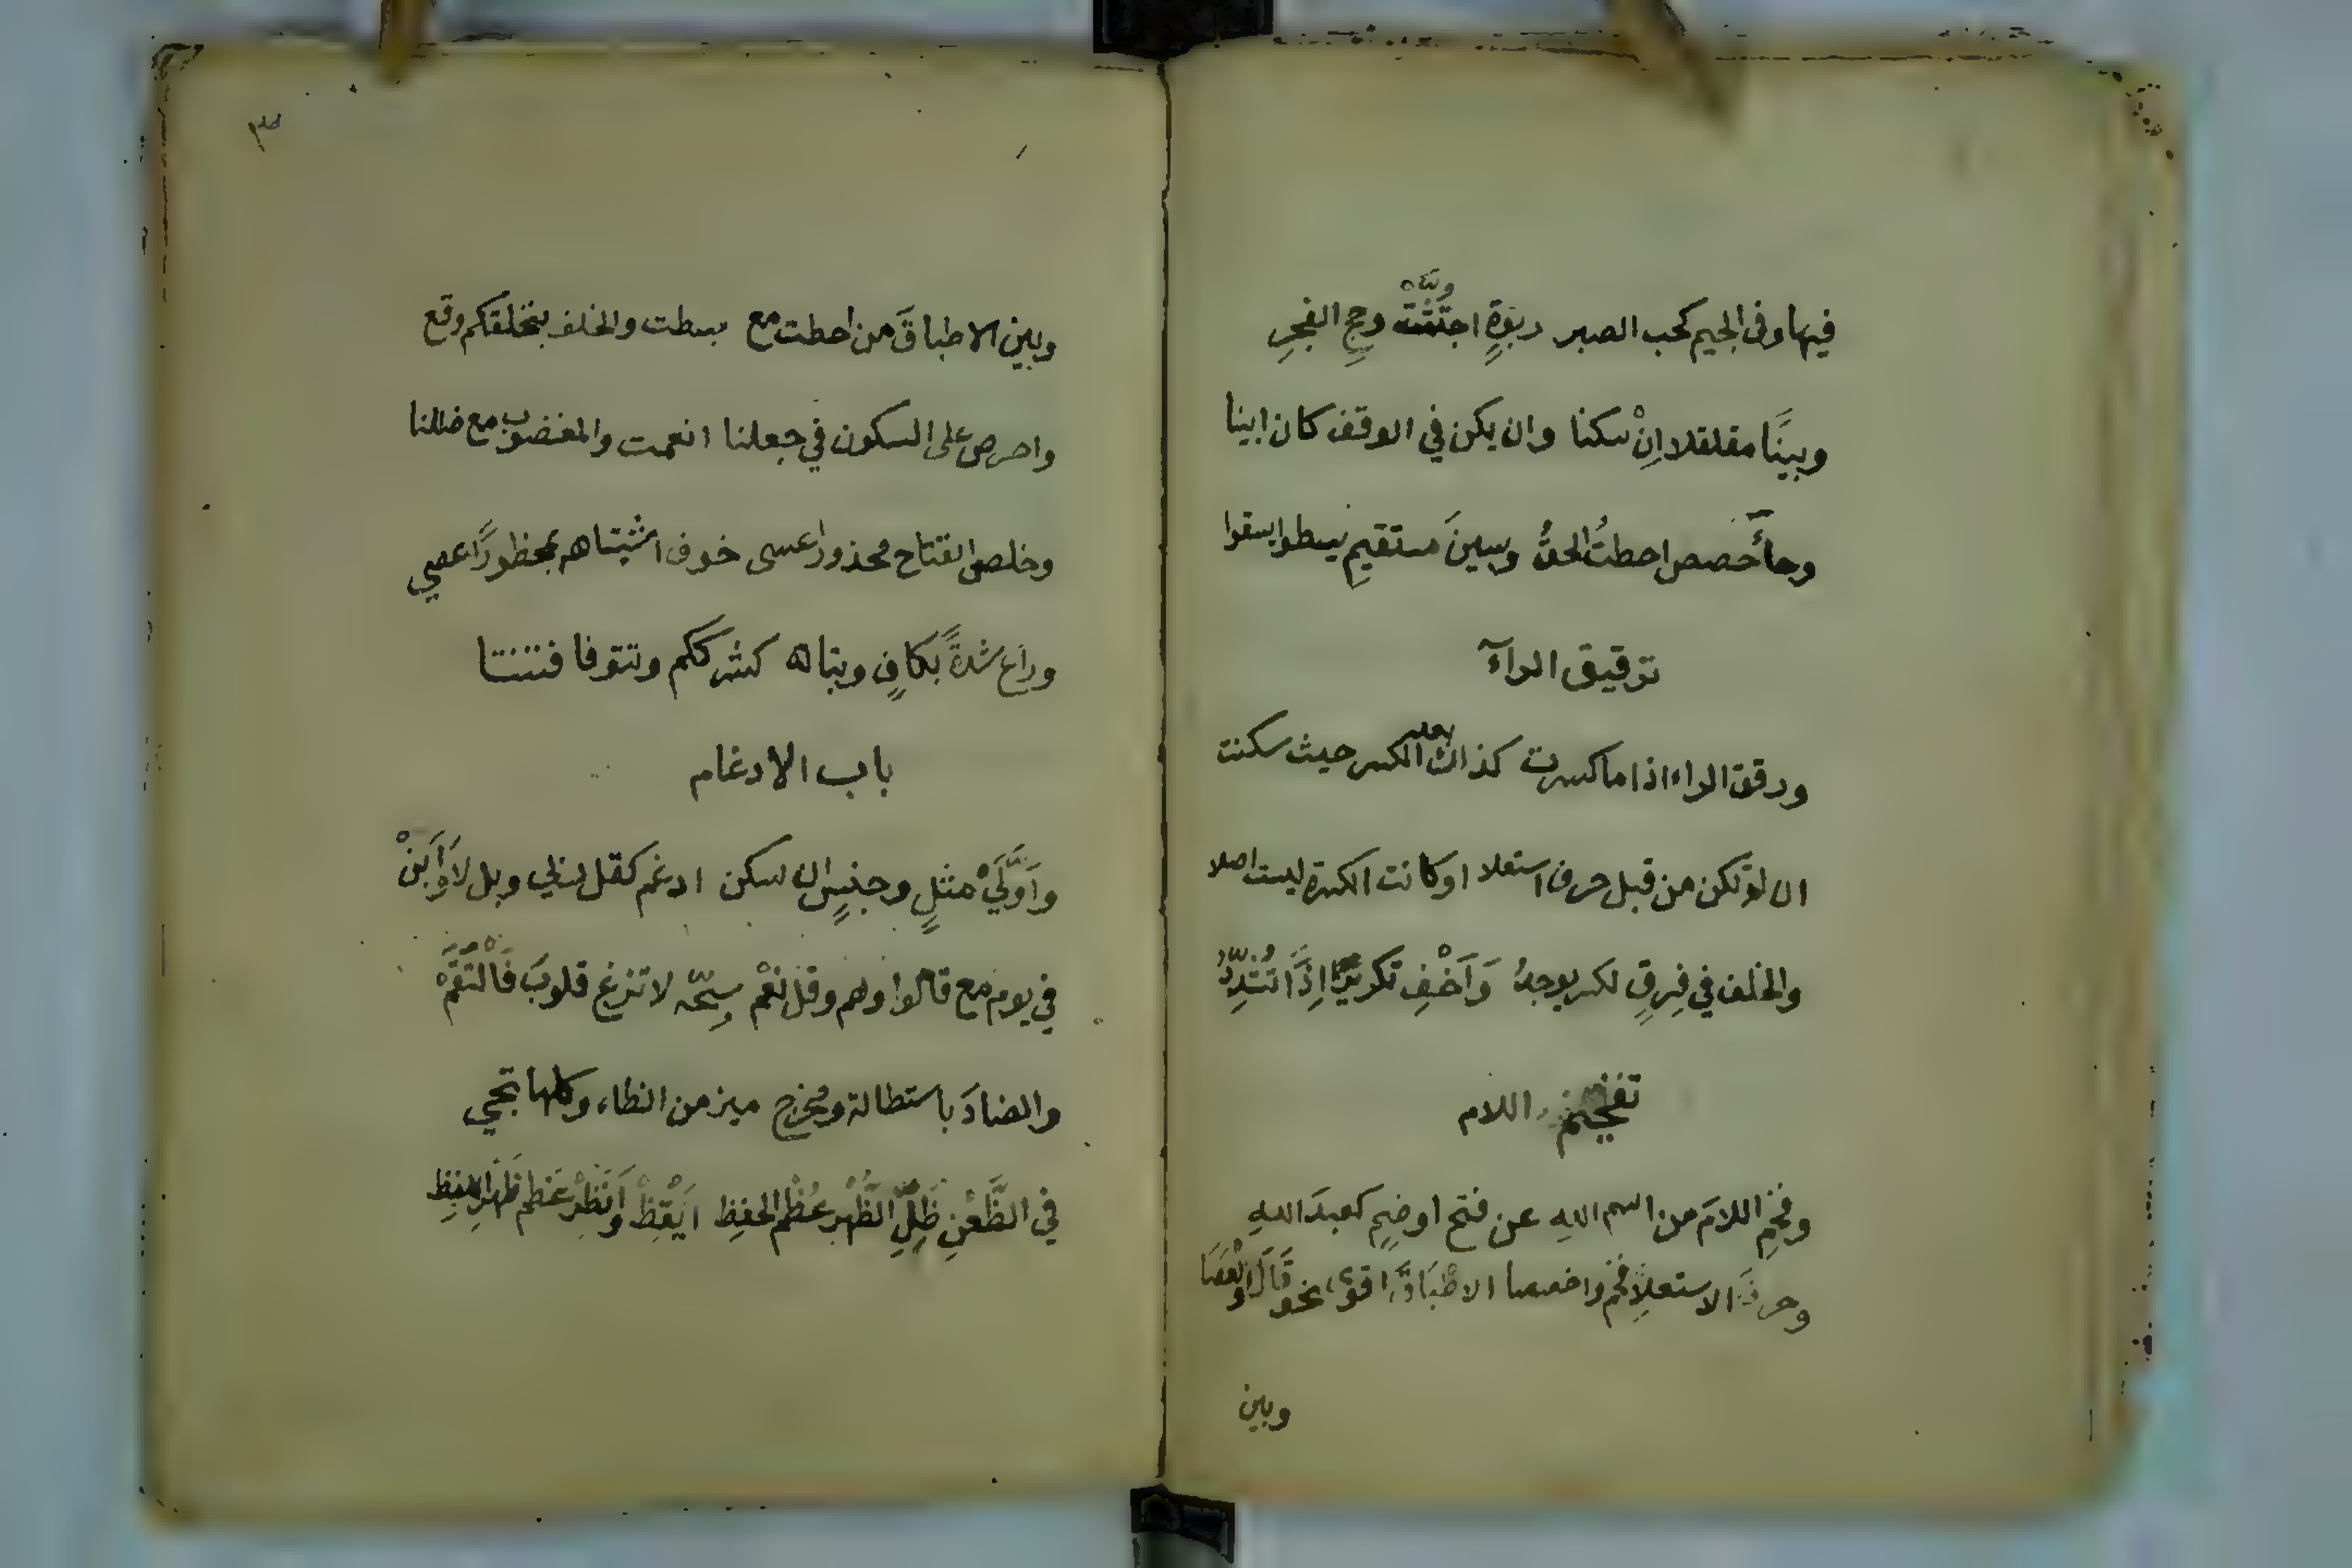 فيها وفى الجيم كحب الصبر ربوةٍ اجتثت وحج الفجرِ
وبينَّا مقلقلا اِنْ سكنا وان يكن في الوقف كان ابينا
وحآءَ حصحص احطتُ الحقُّ وسينَ مستقيمِ يسطوا يسقوا
ترقيق الرآء
ورقق الراء اذا ما كسرت كذاك بعد الكسر حيث سكنت
ان لم تكن من قبل حرف استعلا او كانت الكسرة ليست اصلا
والخلف في فِرقٍ لكسر يوجدُ وَاَخْفِ تكريرًا اِذَا تُشَدَّدُ
تفخيم اللام
وفخِّمِ اللامَ من اسم اللهِ عن فتح او ضمٍ كعبدَ اللهِ
وحرفَ الاستعلا فخم واخصصا الاطْبَاقَ اقوى نحو قَالَ والْعَصَا
وبين
٣
وبين الاطباقَ من احطت مع بسطت والخلف بنخلقكم وقع
واحرص على السكون في جعلنا انعمت والمغضوب مع ضللنا
وخلص انفتاح محذورا عسى خوف اشتباهه بمحظورًا عصى
وراع شدةً بكافٍ وبتا كشرككم وتتوفا فتنتا
باب الادغام
واَوَّلَيْ مثلٍ وجنسٍ ان سكن ادغم كقل لى وبل لا وَاَبِنْ
في يوم مع قالوا وهم وقل نعمْ سبّحه لا تزغ قلوبَ فَالْتَقَمْ
والضادَ باستطالة ومخرج ميز من الظاء وكلها تجي
في الظَّعْنِ ظِلِّ الظُّهْرِ عُظْمِ الحفظِ اَيْقِظْ وَاَنْظِرْ عَظْم ظَهْرِ اللفظِ